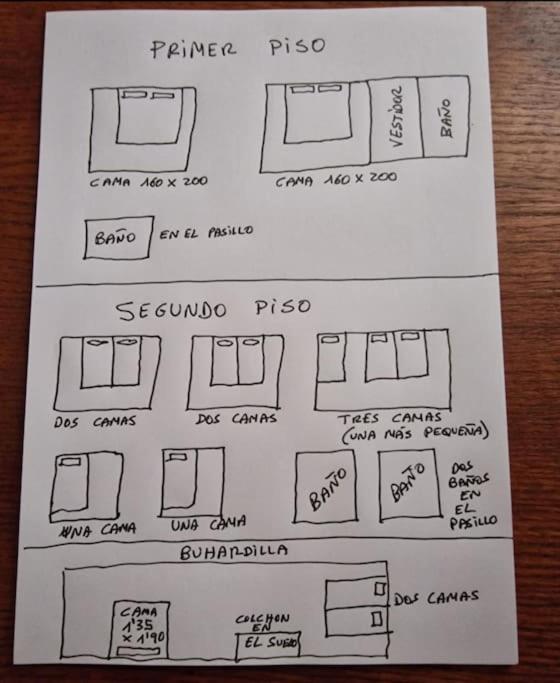 PRIMER PISO
VESTIDOR
BAÑO
CAMA 160 X 200
CAMA 160 X 200
BAÑO
EN EL PASILLO
SEGUNDO PISO
DOS CAMAS
DOS CAMAS
TRES CAMAS
(UNA MÁS PEQUEÑA)
UNA CAMA
UNA CAMA
BAÑO
BAÑO
DOS
BAÑOS
EN
EL
PASILLO
BUHARDILLA
CAMA
1'35
X 1'90
COLCHON
EN
EL SUELO
DOS CAMAS